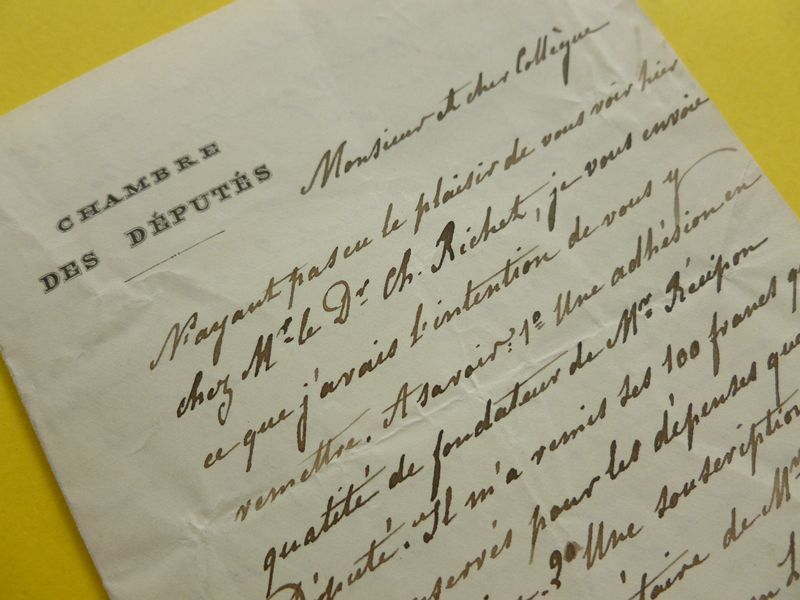 CHAMBRE
DES DÉPUTÉS
Monsieur et cher Collègue
N'ayant pas eu le plaisir de vous voir hier
chez Mr. le Dr. Ch. Richet, je vous envoie
ce que j'avais l'intention de vous y
remettre. A savoir: 1º Une adhésion en
qualité de fondateur de Mr. Récipon
Député. Il m'a remis ses 100 francs
pour les dépenses
2º Une souscription
de Mr